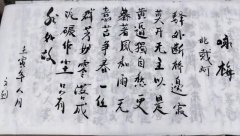 咏梅
驿外断桥边寂
寞开无主已是
黄昏独自愁更
著风和雨无
意苦争春一任
群芳妒零落成
泥碾作尘只有
香如故
壬寅年八月